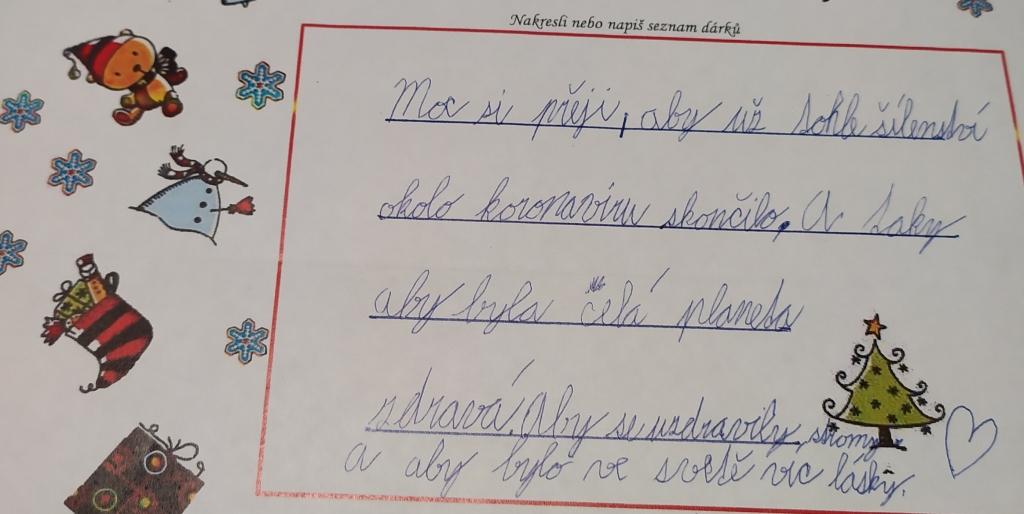 Nakresli nebo napiš seznam dárků
Moc si přeji, aby už tohle šílenství
okolo koronavíru skončilo. A taky
aby byla celá planeta
zdravá. Aby se uzdravily stromy.
A aby bylo ve světě víc lásky.